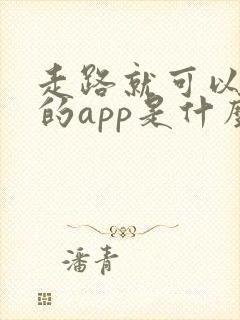 走路就可以
的app是什么
潘青